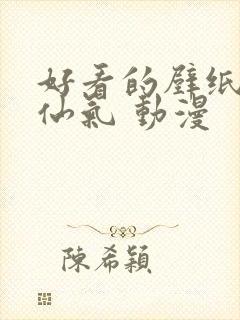 好看的壁纸
仙氣 動漫
陳希穎